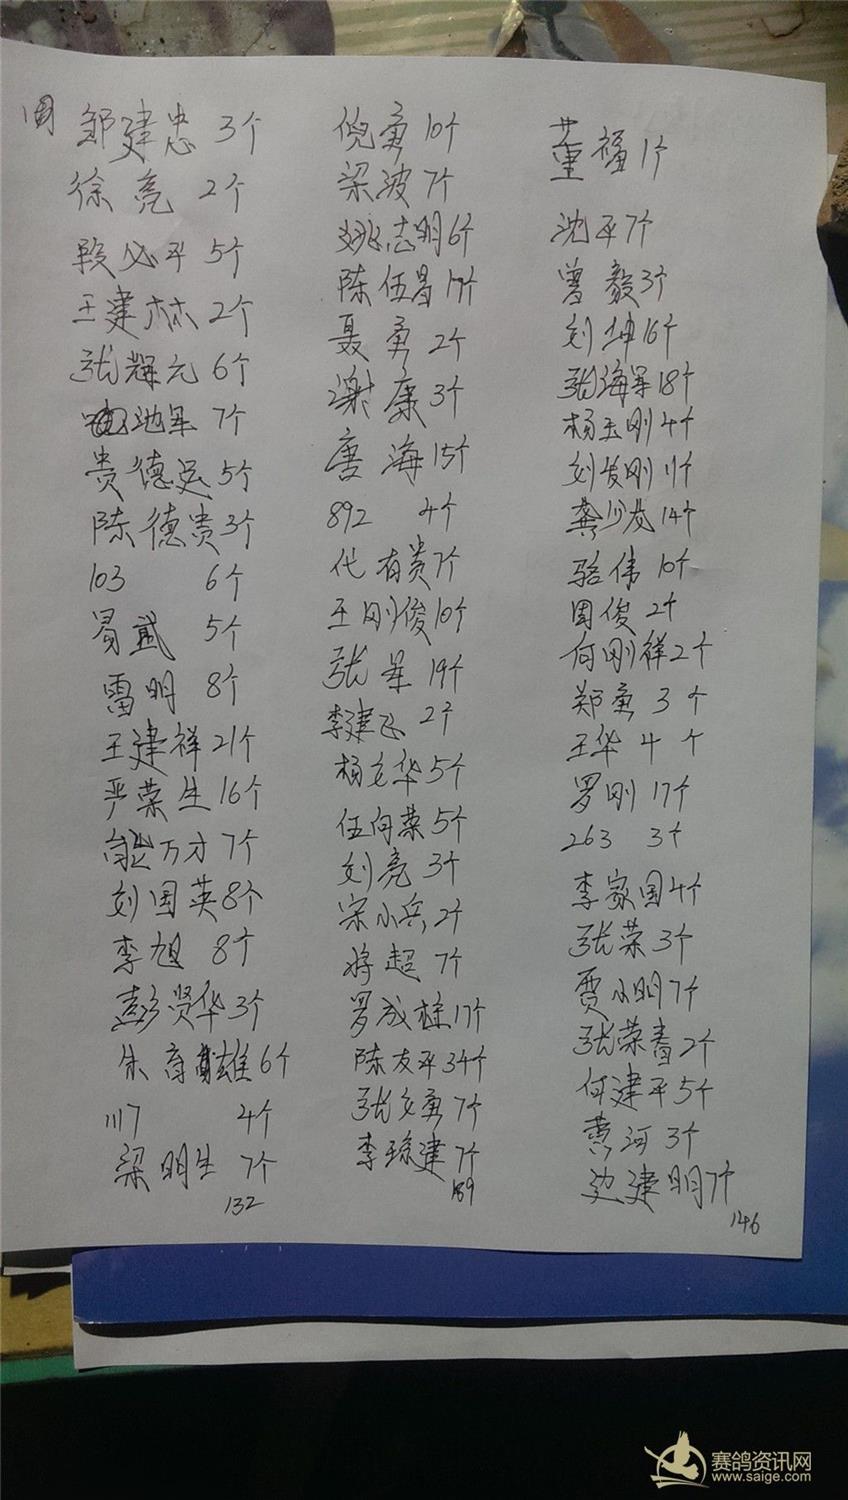 周
邹建忠 3个
徐亮 2个
段必平 5个
王建林 2个
张辉元 6个
池军 7个
贵德运 5个
陈德贵 3个
103 6个
易武 5个
雷明 8个
王建祥 21个
严荣生 16个
熊万才 7个
刘国英 8个
李旭 8个
彭贤华 3个
朱育雄 6个
117 4个
梁明生 7个
132
倪勇 10个
梁波 7个
姚志明 6个
陈伍昌 17个
聂勇 2个
谢康 3个
唐海 15个
892 4个
代有贵 7个
王刚俊 10个
张军 19个
李建飞 2个
杨文华 5个
伍向荣 5个
刘亮 3个
宋小兵 2个
蒋超 7个
罗成桂 17个
陈友平 34个
张文勇 7个
李琼建 7个
189
董福 1个
沈平 7个
曾毅 3个
刘坤 16个
张海军 18个
杨玉刚 4个
刘发刚 11个
龚少友 14个
骆伟 10个
周俊 2个
何刚祥 2个
郑勇 3个
王华 4个
罗刚 17个
263 3个
李家国 4个
张荣 3个
贾小明 7个
张荣春 2个
何建平 5个
黄河 3个
边建明 7个
146
赛鸽资讯网
www.saige.com